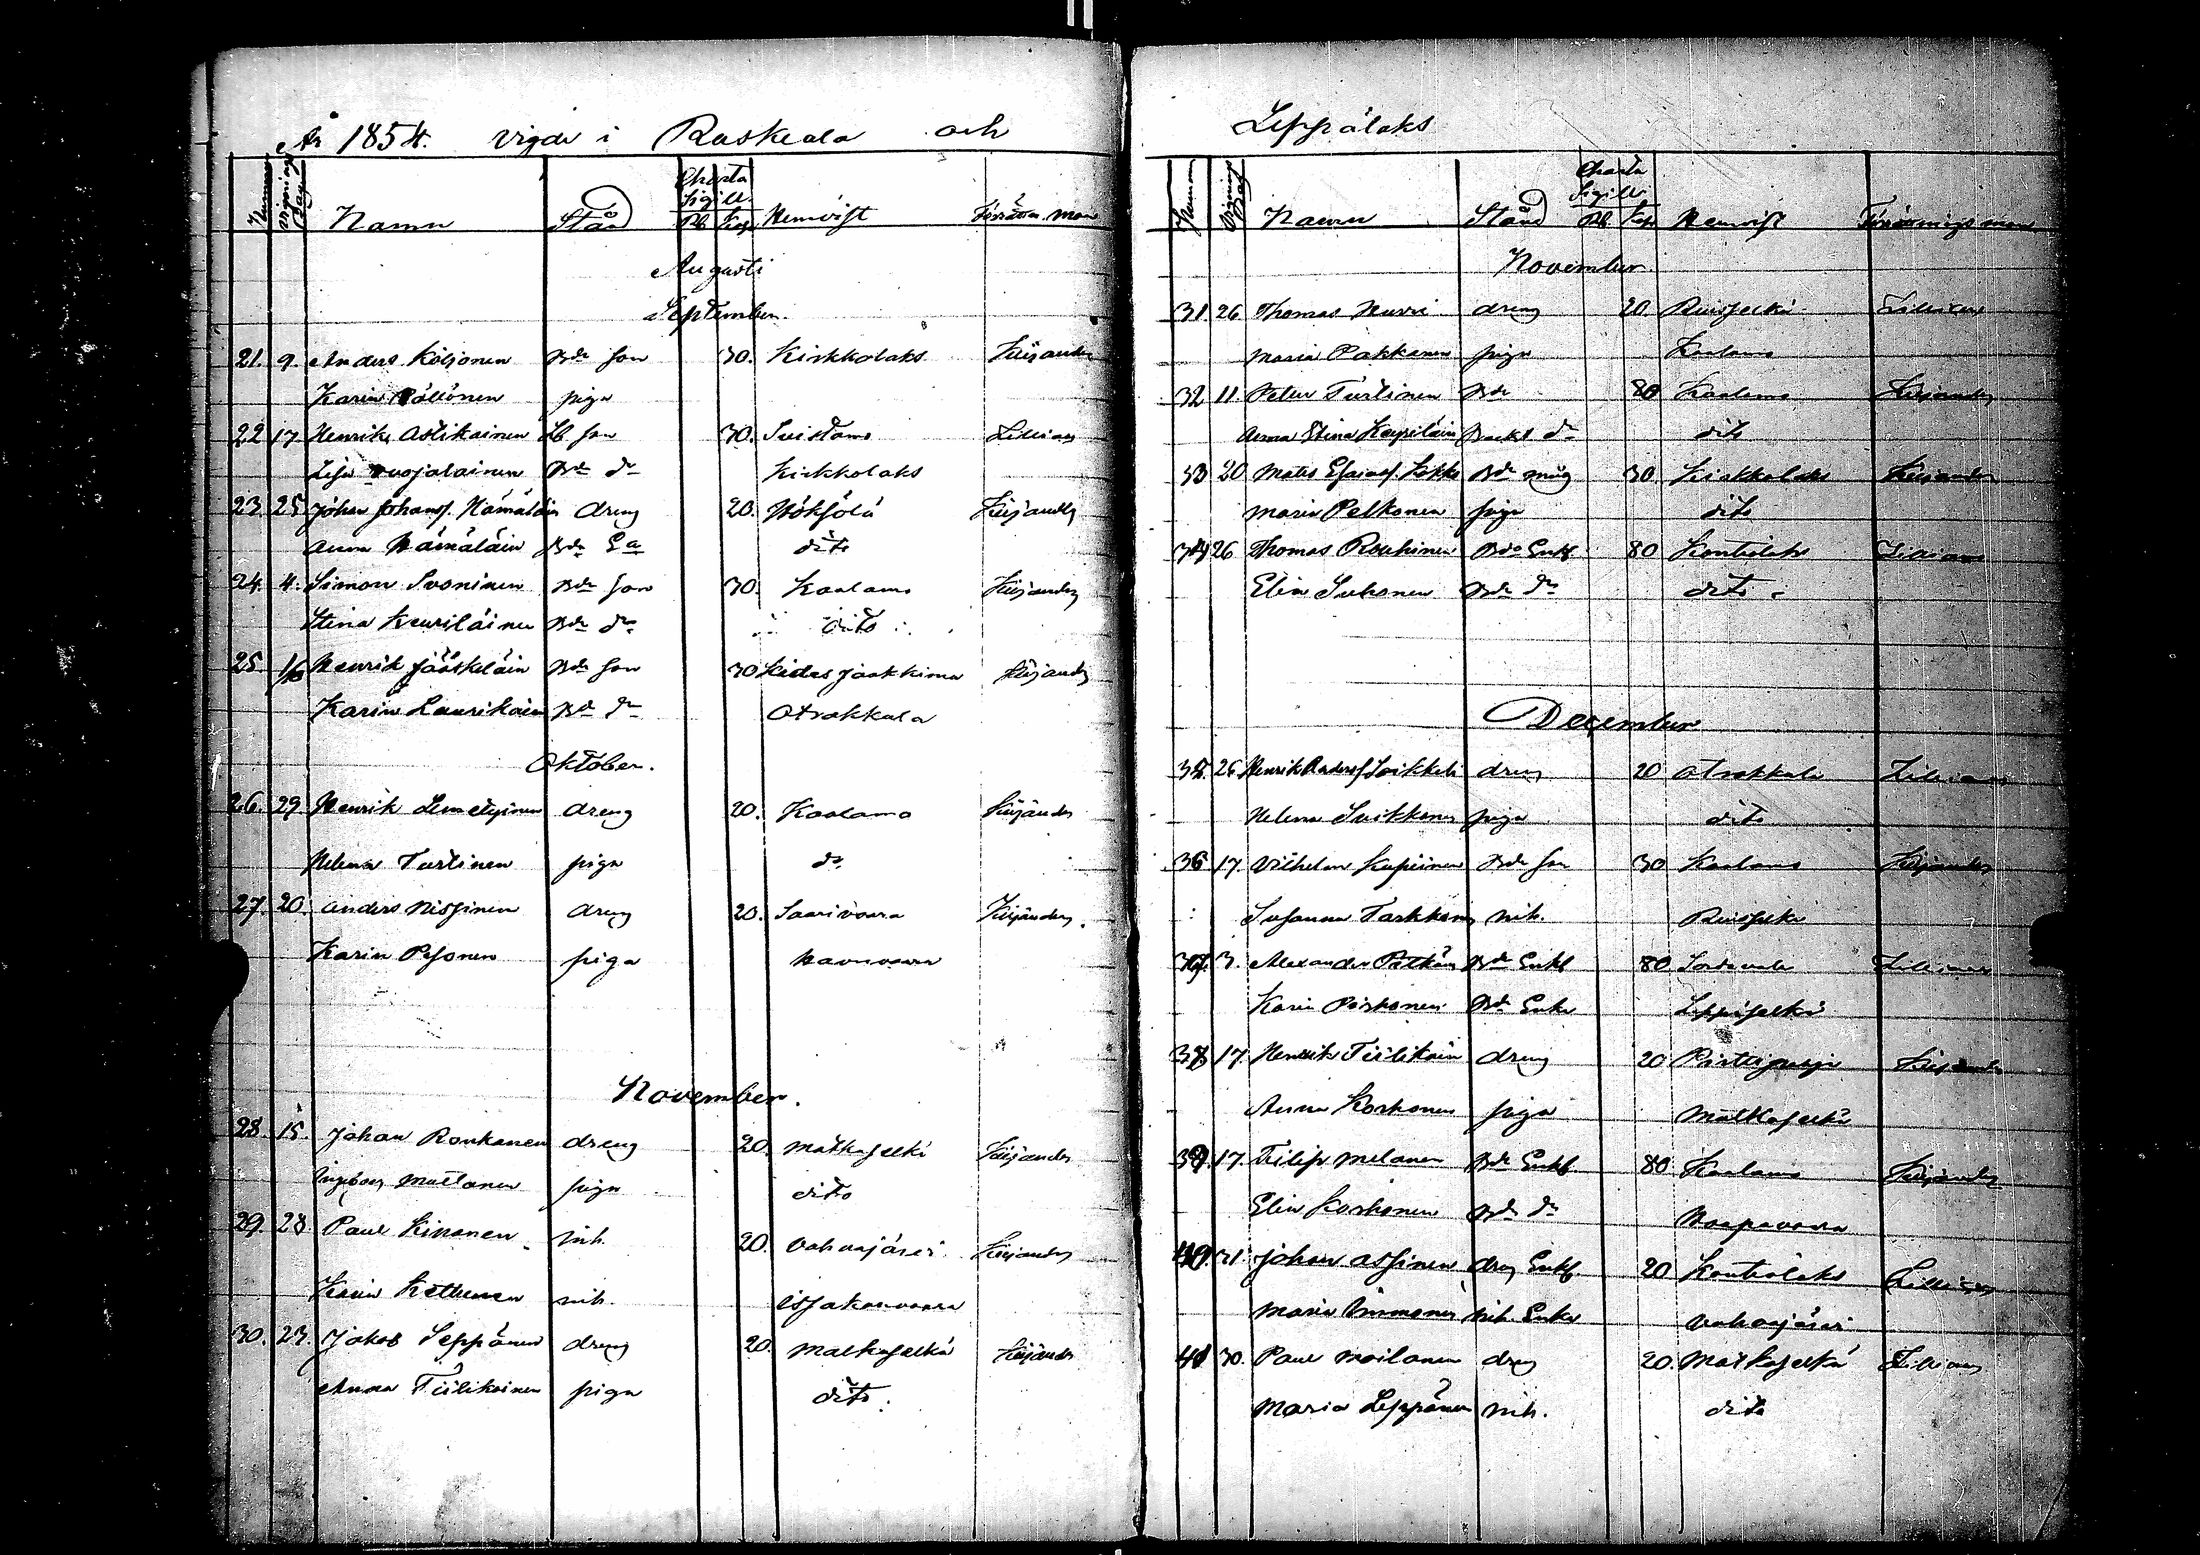 År 1854. Vigde i Ruskeala och
Nummer Vignings Dag Namn Stånd Charta Sigill. Rb. Kop Hemvist Förrättn. man
Augusti
September.
21. 9. Anders Köljonen Bde son 30. Kirkkolaks Kiljander
Karin Pöllönen piga
22 17. Henrik Astikainen Lb son 30. Suistamo Lillius
Lisa Bde dr Kirkkolaks
23. 25 Johan Johanss. Hämäläin dreng 20. Höksölä Kiljander
Anna Hämäläin Bde Ea dito
24. 4. Simon Ivoninen Bde son 30. Kaalamo Kiljander
Stina Keuriläinen Bde dr dito
25. 16 Henrik Jääskeläin Bde son 30 Kides Jaakkima Kiljander
Karin Laurikain Bde dr Otrakkala
Oktober.
26. 29. Henrik Lemetyinen dreng 20. Kaalamo Kiljander
Helena Turtinen piga do
27. 20. Anders Nissinen dreng 20. Saarivaara Kiljander.
Karin Pesonen piga Havuvaara
November.
28. 15. Johan Ronkanen dreng 20. Matkaselkä Kiljander
Ingeborg Mustonen piga dito
29. 28. Paul Kinonen inh. 20. Vahvajärvi Kiljander
Karin Kettunen inh. Issakanvaara
30. 23. Jakob Seppänen dreng 20. Matkaselkä Kiljander
Anna Tiilikainen piga dito.
Leppälaks
Nummer Vignings Dag Namn Stånd Charta Sigilli Rb. Kop Hemvist Förrättnings man
November.
31. 26 Thomas Hurri dreng 20 Ruisselkä Lillius
Maria Pakkanen piga Kaalamo
32 11. Petter Turtinen Bde 80 Kaalamo Kiljander
Anna Stina Keuriläin Backst dr dito
33 20 Mats Esaiass. Kokko Bde måg 30 Kirkkolaks Kiljander
Maria Pelkonen piga dito
34 26 Thomas Rouhinen Bde Enkl 80 Kontiolaks Lillius
Elin Suhonen Bde dr dito
December
35. 26 Henrik Anderss. Soikkeli dreng 20 Otrakkala Lillius
Helena Suikkonen piga dito
36 17. Vilhelm Kupiainen Bde son 30 Kaalamo Kiljander
Susanna Tarkkonen inh. Ruisselkä
37. 3. Alexander Bde Enkl 80 Sordavala Lillius
Karin Bde Enka Leppäselkä
38 17. Henrik Tiilikain dreng 20 Kiljander
Anna Korhonen piga Matkaselkä
39. 17. Filip Melanen Bde Enkl 80 Kaalamo Kiljander
Elin Korhonen Bde dr Haapavaara
40. 21. Johan Assinen dreng Enkl. 20 Kontiolaks Lillius
Maria Immonen inh. Enka Vahvajärvi
41 30. Paul Moilanen dreng 20. Matkaselkä Lillius
Maria Leppänen inh. dito